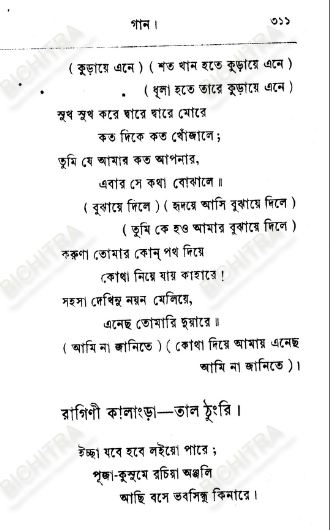 গান।
৩১১
( কুড়ায়ে এনে ) ( শত খান হতে কুড়ায়ে এনে )
( ধূলা হতে তারে কুড়ায়ে এনে )
সুখ সুখ করে দ্বারে দ্বারে মোরে
কত দিকে কত খোঁজালে ;
তুমি যে আমার কত আপনার,
এবার সে কথা বোঝালে॥
( বুঝায়ে দিলে ) ( হৃদয়ে আসি বুঝায়ে দিলে )
( তুমি কে হও আমার বুঝায়ে দিলে )
করুণা তোমার কোন্ পথ দিয়ে
কোথা নিয়ে যায় কাহারে !
সহসা দেখিনু নয়ন মেলিয়ে,
এনেছ তোমারি দুয়ারে॥
( আমি না জানিতে ) ( কোথা দিয়ে আমায় এনেছ
আমি না জানিতে )।
রাগিণী কালাংড়া—তাল ঠুংরি।
ইচ্ছা যবে হবে লইয়ো পারে ;
পূজা-কুসুমে রচিয়া অঞ্জলি
আছি বসে ভবসিন্ধু কিনারে।
BICHITRA
BICHITRA
BICHITRA
BICHITRA
BICHITRA
BICHITRA